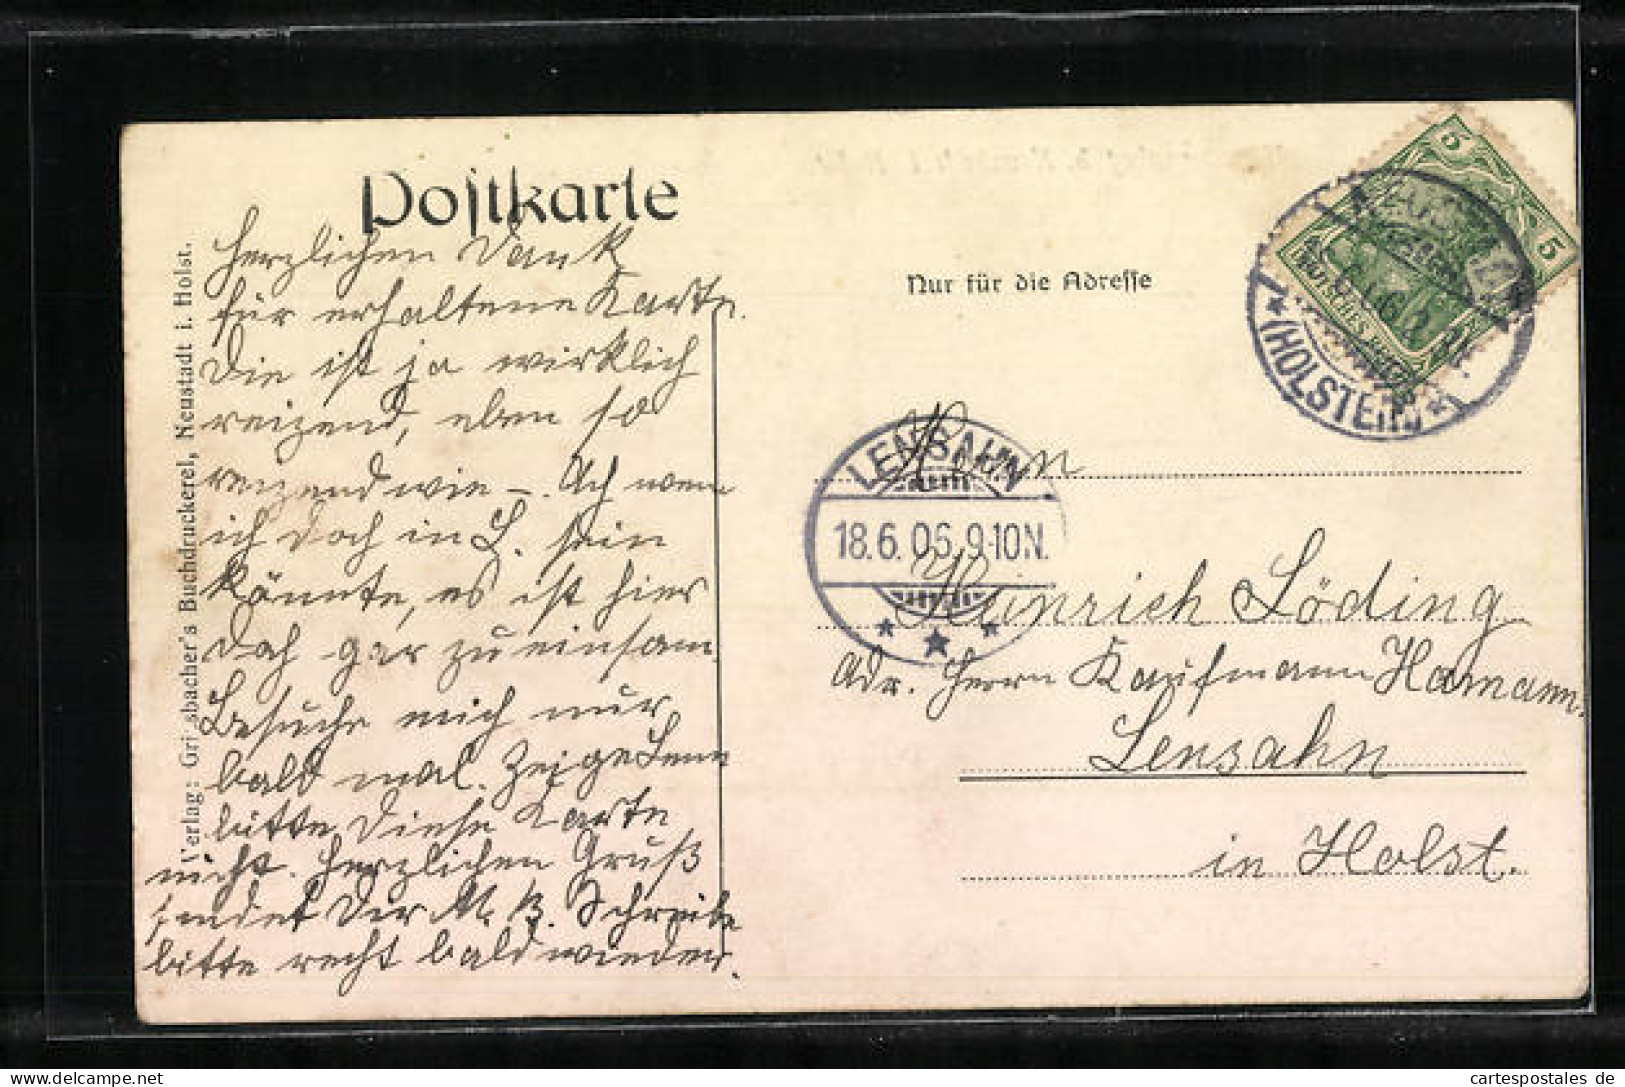 Postkarte
Herzlichen Dank
für erhaltene Karte.
Die ist ja wirklich
reizend, eben so
reizend wie –. Ach wenn
ich doch in L. sein
könnte, es ist hier
doch gar zu einsam.
Besuche mich nur
bald mal. Zeige
bitte diese Karte
nicht. Herzlichen Gruß
sendet Dir M. B. Schreibe
bitte recht bald wieder.
Verlag: Gri sbacher's Buchdruckerei, Neustadt i. Holst.
Nur für die Adresse
5
5
(HOLSTEIN)
LENSAHN
18.6.06.9-10N.
Herrn
Heinrich Löding
Adr. Herrn Kaufmann Hamann
Lensahn
in Holst.
cartespostales de